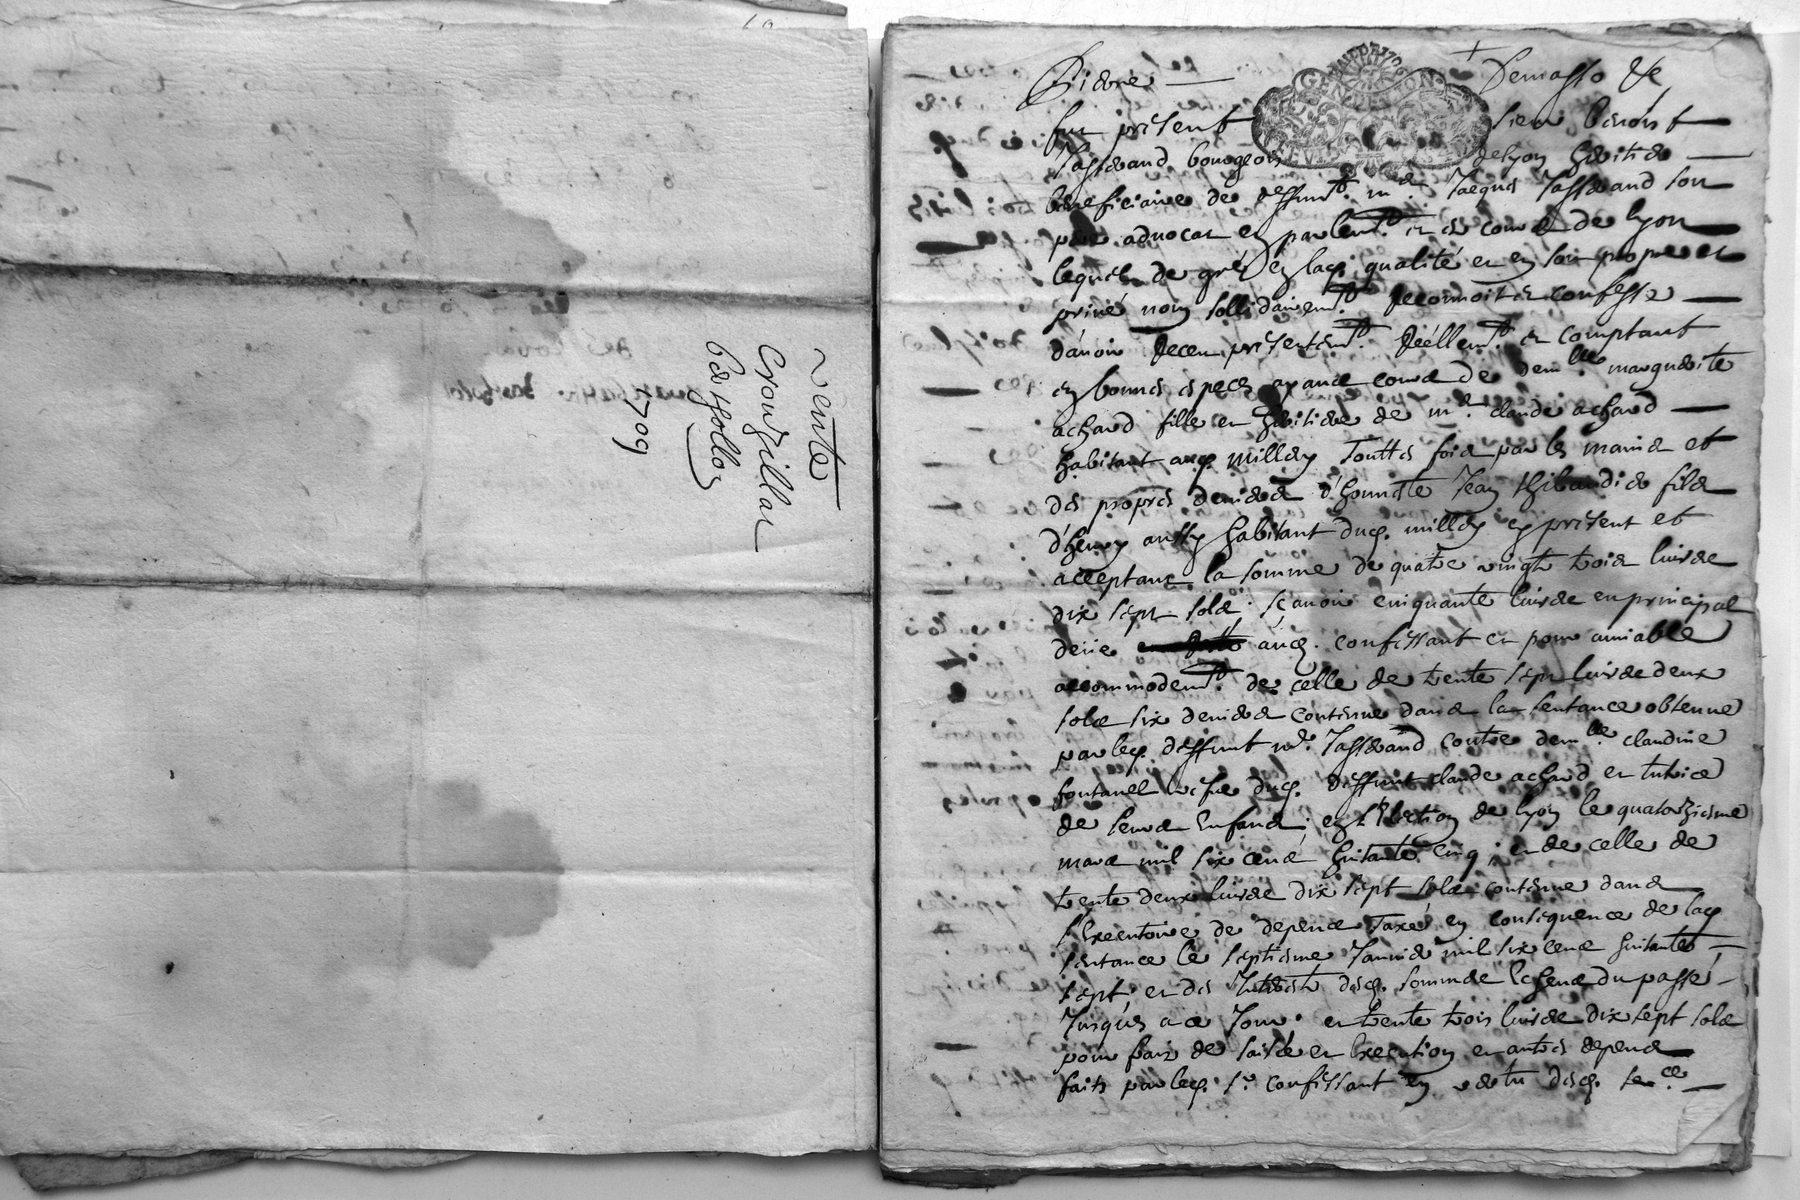 Vente
Crouzillac
Berthollon
1709
GEN DE LYON
fut présent sieur benoist
Tasserand bourgeois de lyon héritier
bénéficiaire de deffunt mr. Jacques Tasserand son
père advocat en parlemt. et es cours de lyon
lequel de gré en lad. qualité et en son propre et
privé nom sollidairemt. reconnoit et confesse
d'avoir receu présentemt. réellemt. et comptant
en bonnes espèces ayant cours de demlle. marguerite
achard fille et héritière de mr. claude achard
habitant au millery Touttes fois par les mains et
des propres deniers d'honneste Jean thibaudier fils
d'henry habitant dud. millery cy présent et
acceptant la somme de quatre vingt trois livres
dix sept sols. sçavoir cinquante livres en principal
aud. confessant et pour amiable
accommodemt. de celle de trente sept livres deux
sols six deniers contenue dans la sentance obtenue
par led. deffunt sr. Tasserand contre demlle. claudine
fontanel vefve dud. deffunt claude achard et tutrice
de leurs Enfans, en l'Election de lyon le quatorzieme
mars mil six cens huitante cinq, et de celle de
trente deux livres dix sept sols contenue dans
l'Executoire de depens Taxé en conséquence de lad.
sentance le septieme Janvier mil six cens huitante
sept et des Interests desd. sommes Echeus du passé
Jusques a ce Jour. et trente trois livres dix sept sols
pour frais de saisie et Execution et autres depens
faits par led. sr. confessant en vertu desd. sence.